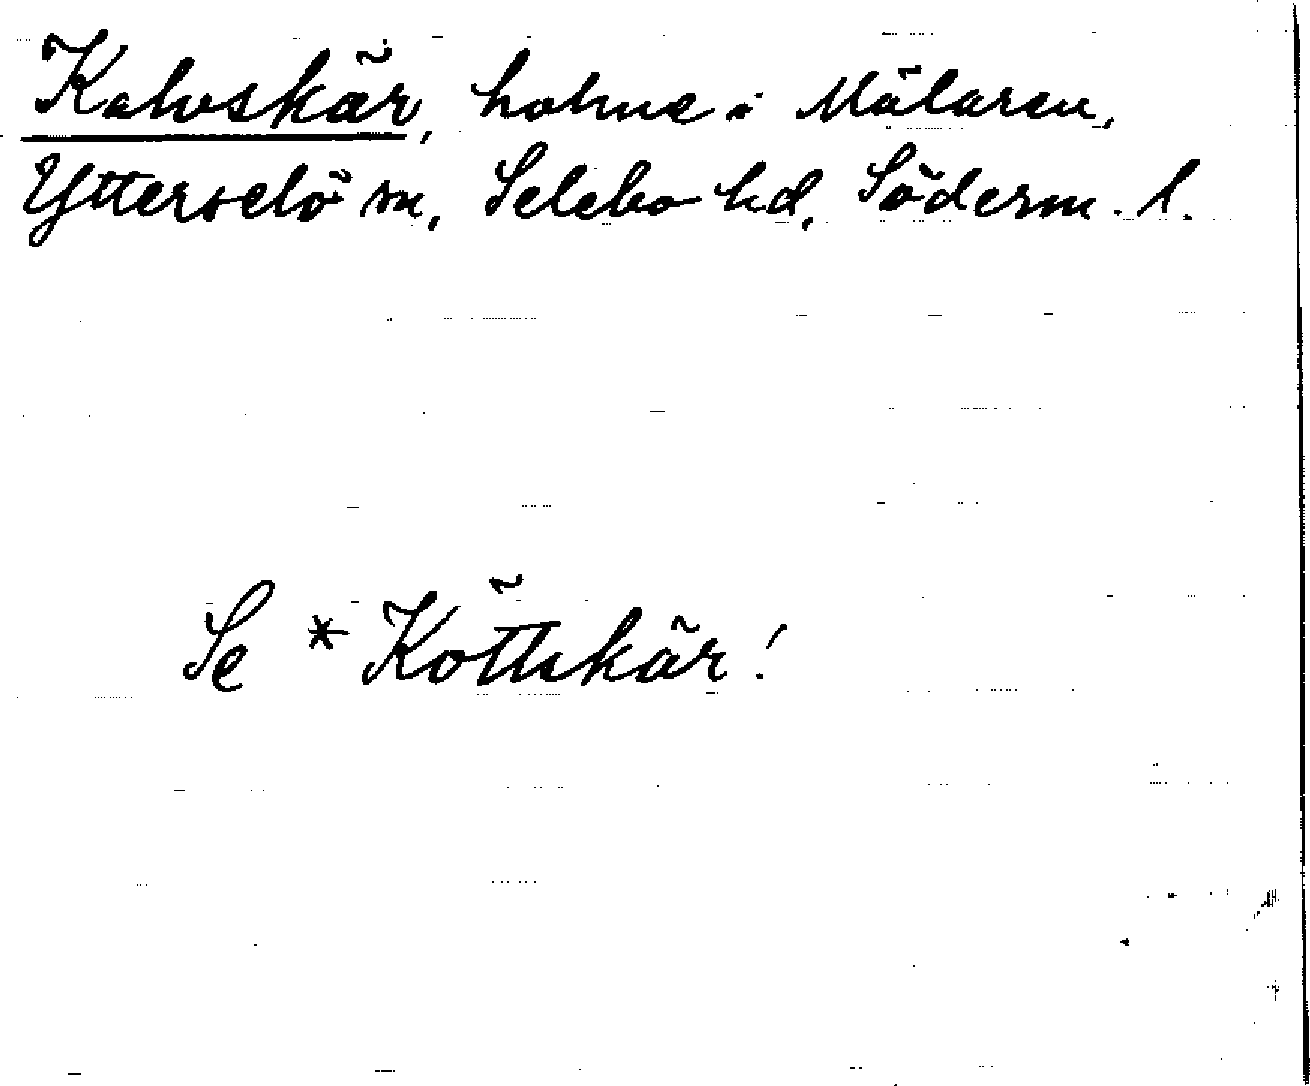 Kalvskär, holme i Mälaren,
Ytterselö sn, Selebo hd, Söderm. l.
Se *Köttskär!